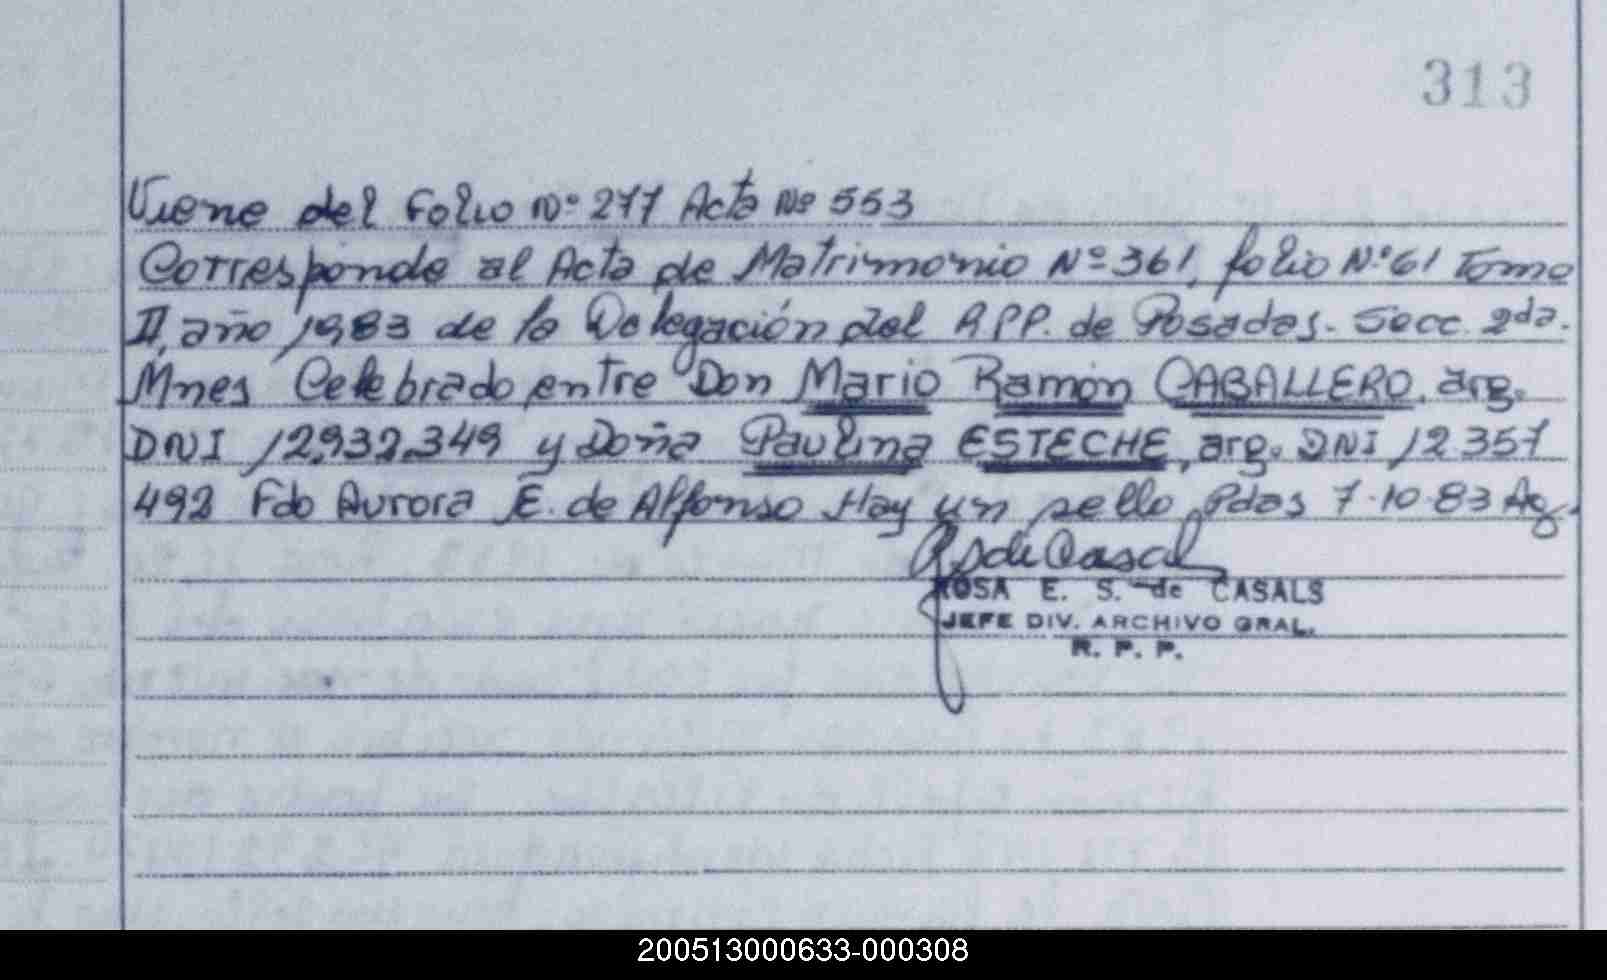 313
Viene del Folio Nº 277 Acta Nº 553
Corresponde al Acta de Matrimonio Nº 361, folio Nº 61 Tomo
II, año 1983 de la Delegación del R.P.P. de Posadas. Secc. 2da.
Mnes Celebrado entre Don Mario Ramón CABALLERO, arg.
DNI 12.932.349 y Doña Paulina ESTECHE, arg. DNI 12.357
492 Fdo Aurora E. de Alfonso Hay un sello Pdas 7-10-83 Ag.
ROSA E. S. de CASALS
JEFE DIV. ARCHIVO GRAL.
R. P. P.
200513000633-000308